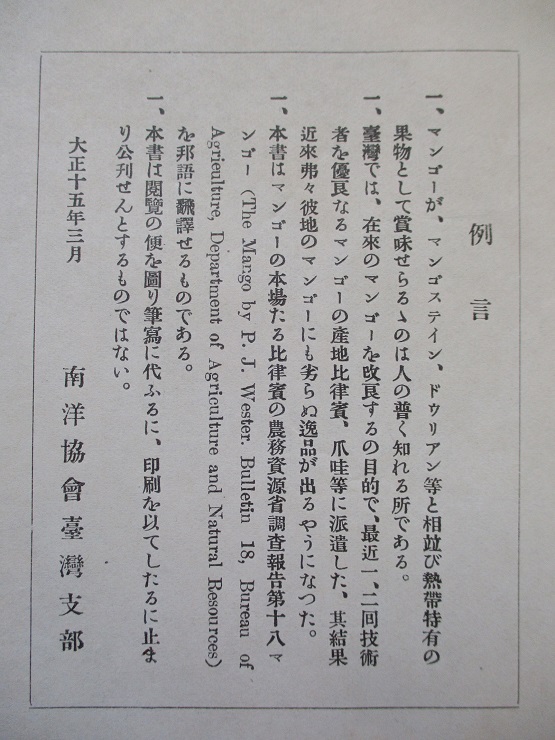 例言
一、マンゴーが、マンゴスティン、ドウリアン等と相竝び熱帶特有の
果物として賞味せらるゝのは人の普く知れる所である。
一、臺灣では、在來のマンゴーを改良するの目的で、最近一、二囘技術
者を優良なるマンゴーの産地比律賓、爪哇等に派遣した、其結果
近來弗々彼地のマンゴーにも劣らぬ逸品が出るやうになつた。
一、本書はマンゴーの本場たる比律賓の農務資源省調査報告第十八マ
ンゴー (The Mango by P. J. Wester. Bulletin 18, Bureau of
Agrieulture, Department of Agriculture and Natural Resources)
を邦語に飜譯せるものである。
一、本書は閲覽の便を圖り筆寫に代ふるに、印刷を以てしたるに止ま
り公刊せんとするものではない。
大正十五年三月
南洋協會臺灣支部